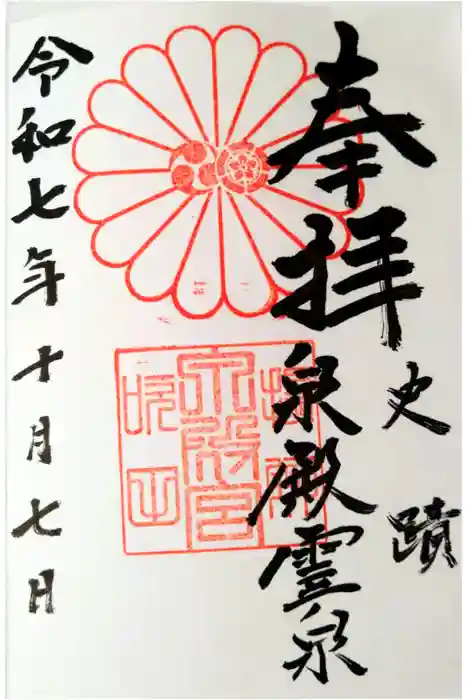 史蹟
奉拝 泉殿霊泉
令和七年十月七日